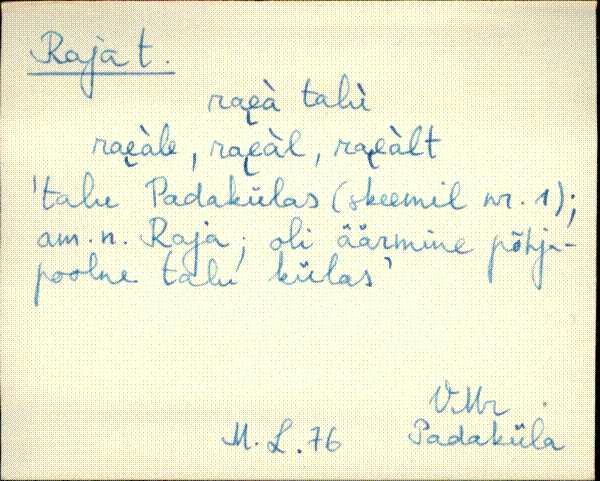 Raja t.
rae̮à talù
rae̮àle, rae̮àl, rae̮àlt
'talu Padakülas (skeemil nr. 1);
am. n. Raja; oli äärmine põhja-
poolne talu külas'
V.Mr
M. L. 76 Padaküla